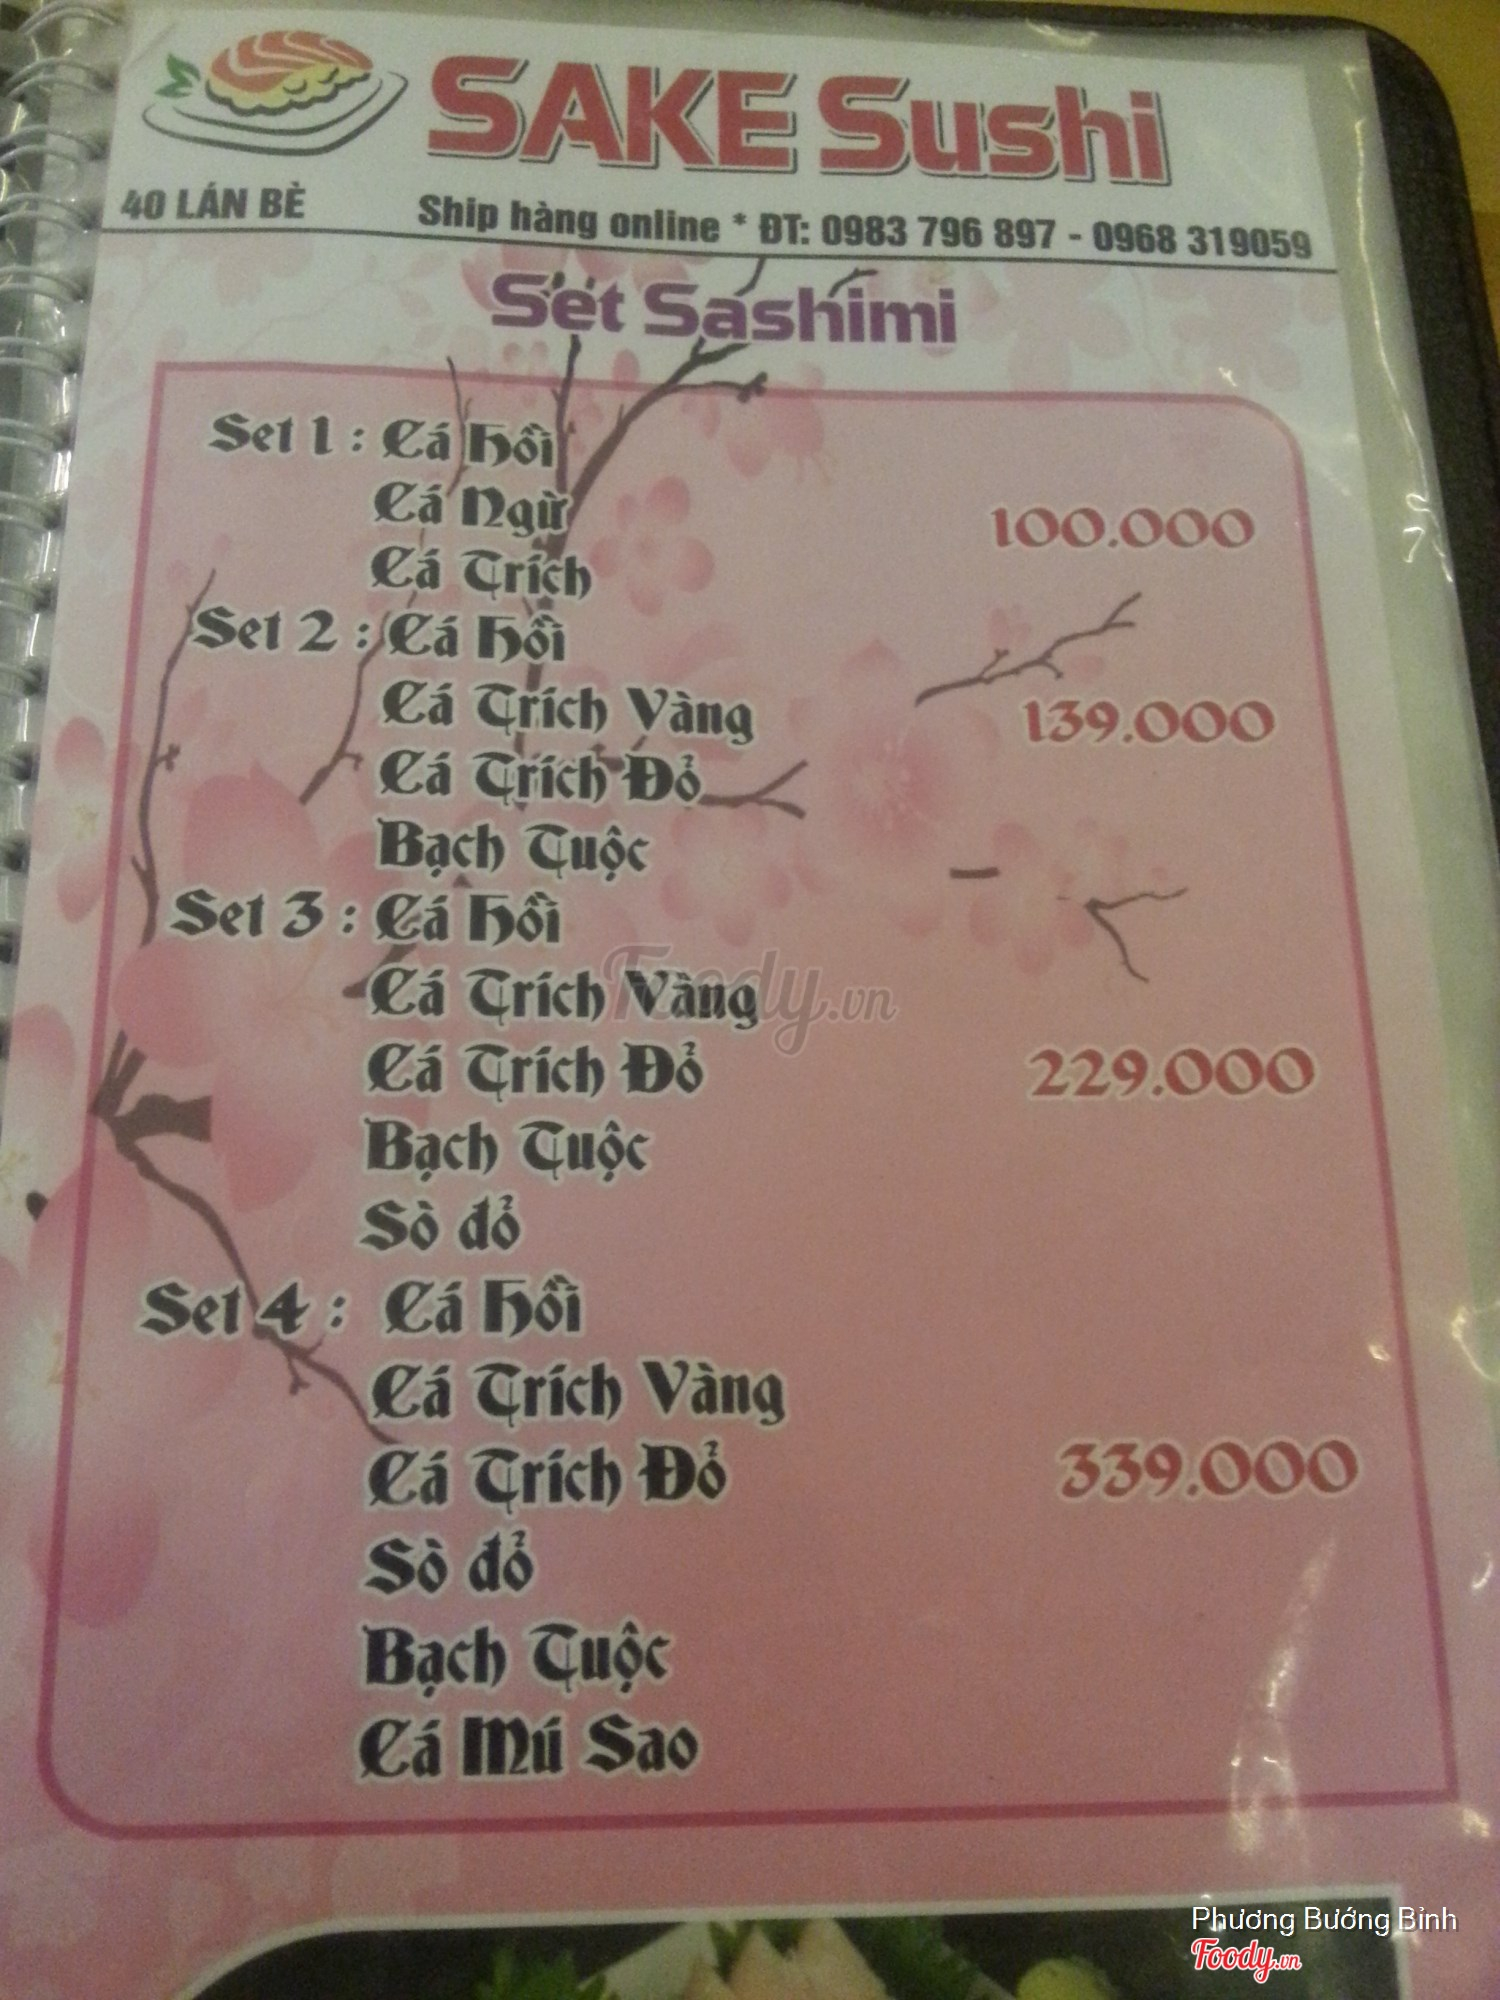 SAKE Sushi
40 LÁN BÈ Ship hàng online * ĐT: 0983 796 897 - 0968 319059
Set Sashimi
Set 1 : Cá Hồi
Cá Ngừ 100.000
Cá Trích
Set 2 : Cá Hồi
Cá Trích Vàng 139.000
Cá Trích Đỏ
Bạch Tuộc
Set 3 : Cá Hồi
Cá Trích Vàng
Cá Trích Đỏ 229.000
Bạch Tuộc
Sò đỏ
Set 4 : Cá Hồi
Cá Trích Vàng
Cá Trích Đỏ 339.000
Sò đỏ
Bạch Tuộc
Cá Mú Sao
Foody.vn
Phương Bướng Bỉnh
Foody.vn